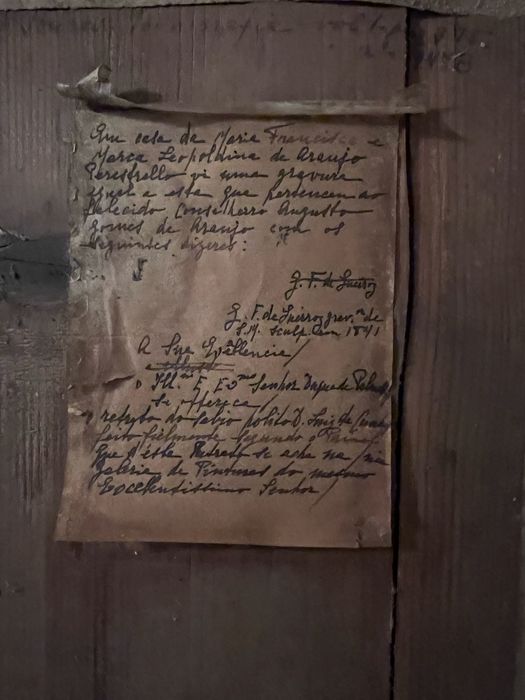 Em casa da Maria Francisca e
Marca Leopoldina de Araujo
Perestrello vi uma gravura
igual a esta que pertenceu ao
falecido Conselheiro Augusto
gomes de Araujo com os
seguintes dizeres:
G. F. de Queiroz
G. F. de Queiroz grav.or de
S. M. Sculp. em 1841
A Sua Excellencia/
o Ill.mo E, Ex.mo Senhor Duque de
Se offerece/
o retrato do sabio polito D. Luiz da Cunha
feito fielmente segundo o
que d'este Retrato se acha na/
galeria de Pinturas do mesmo
Excellentissimo Senhor/